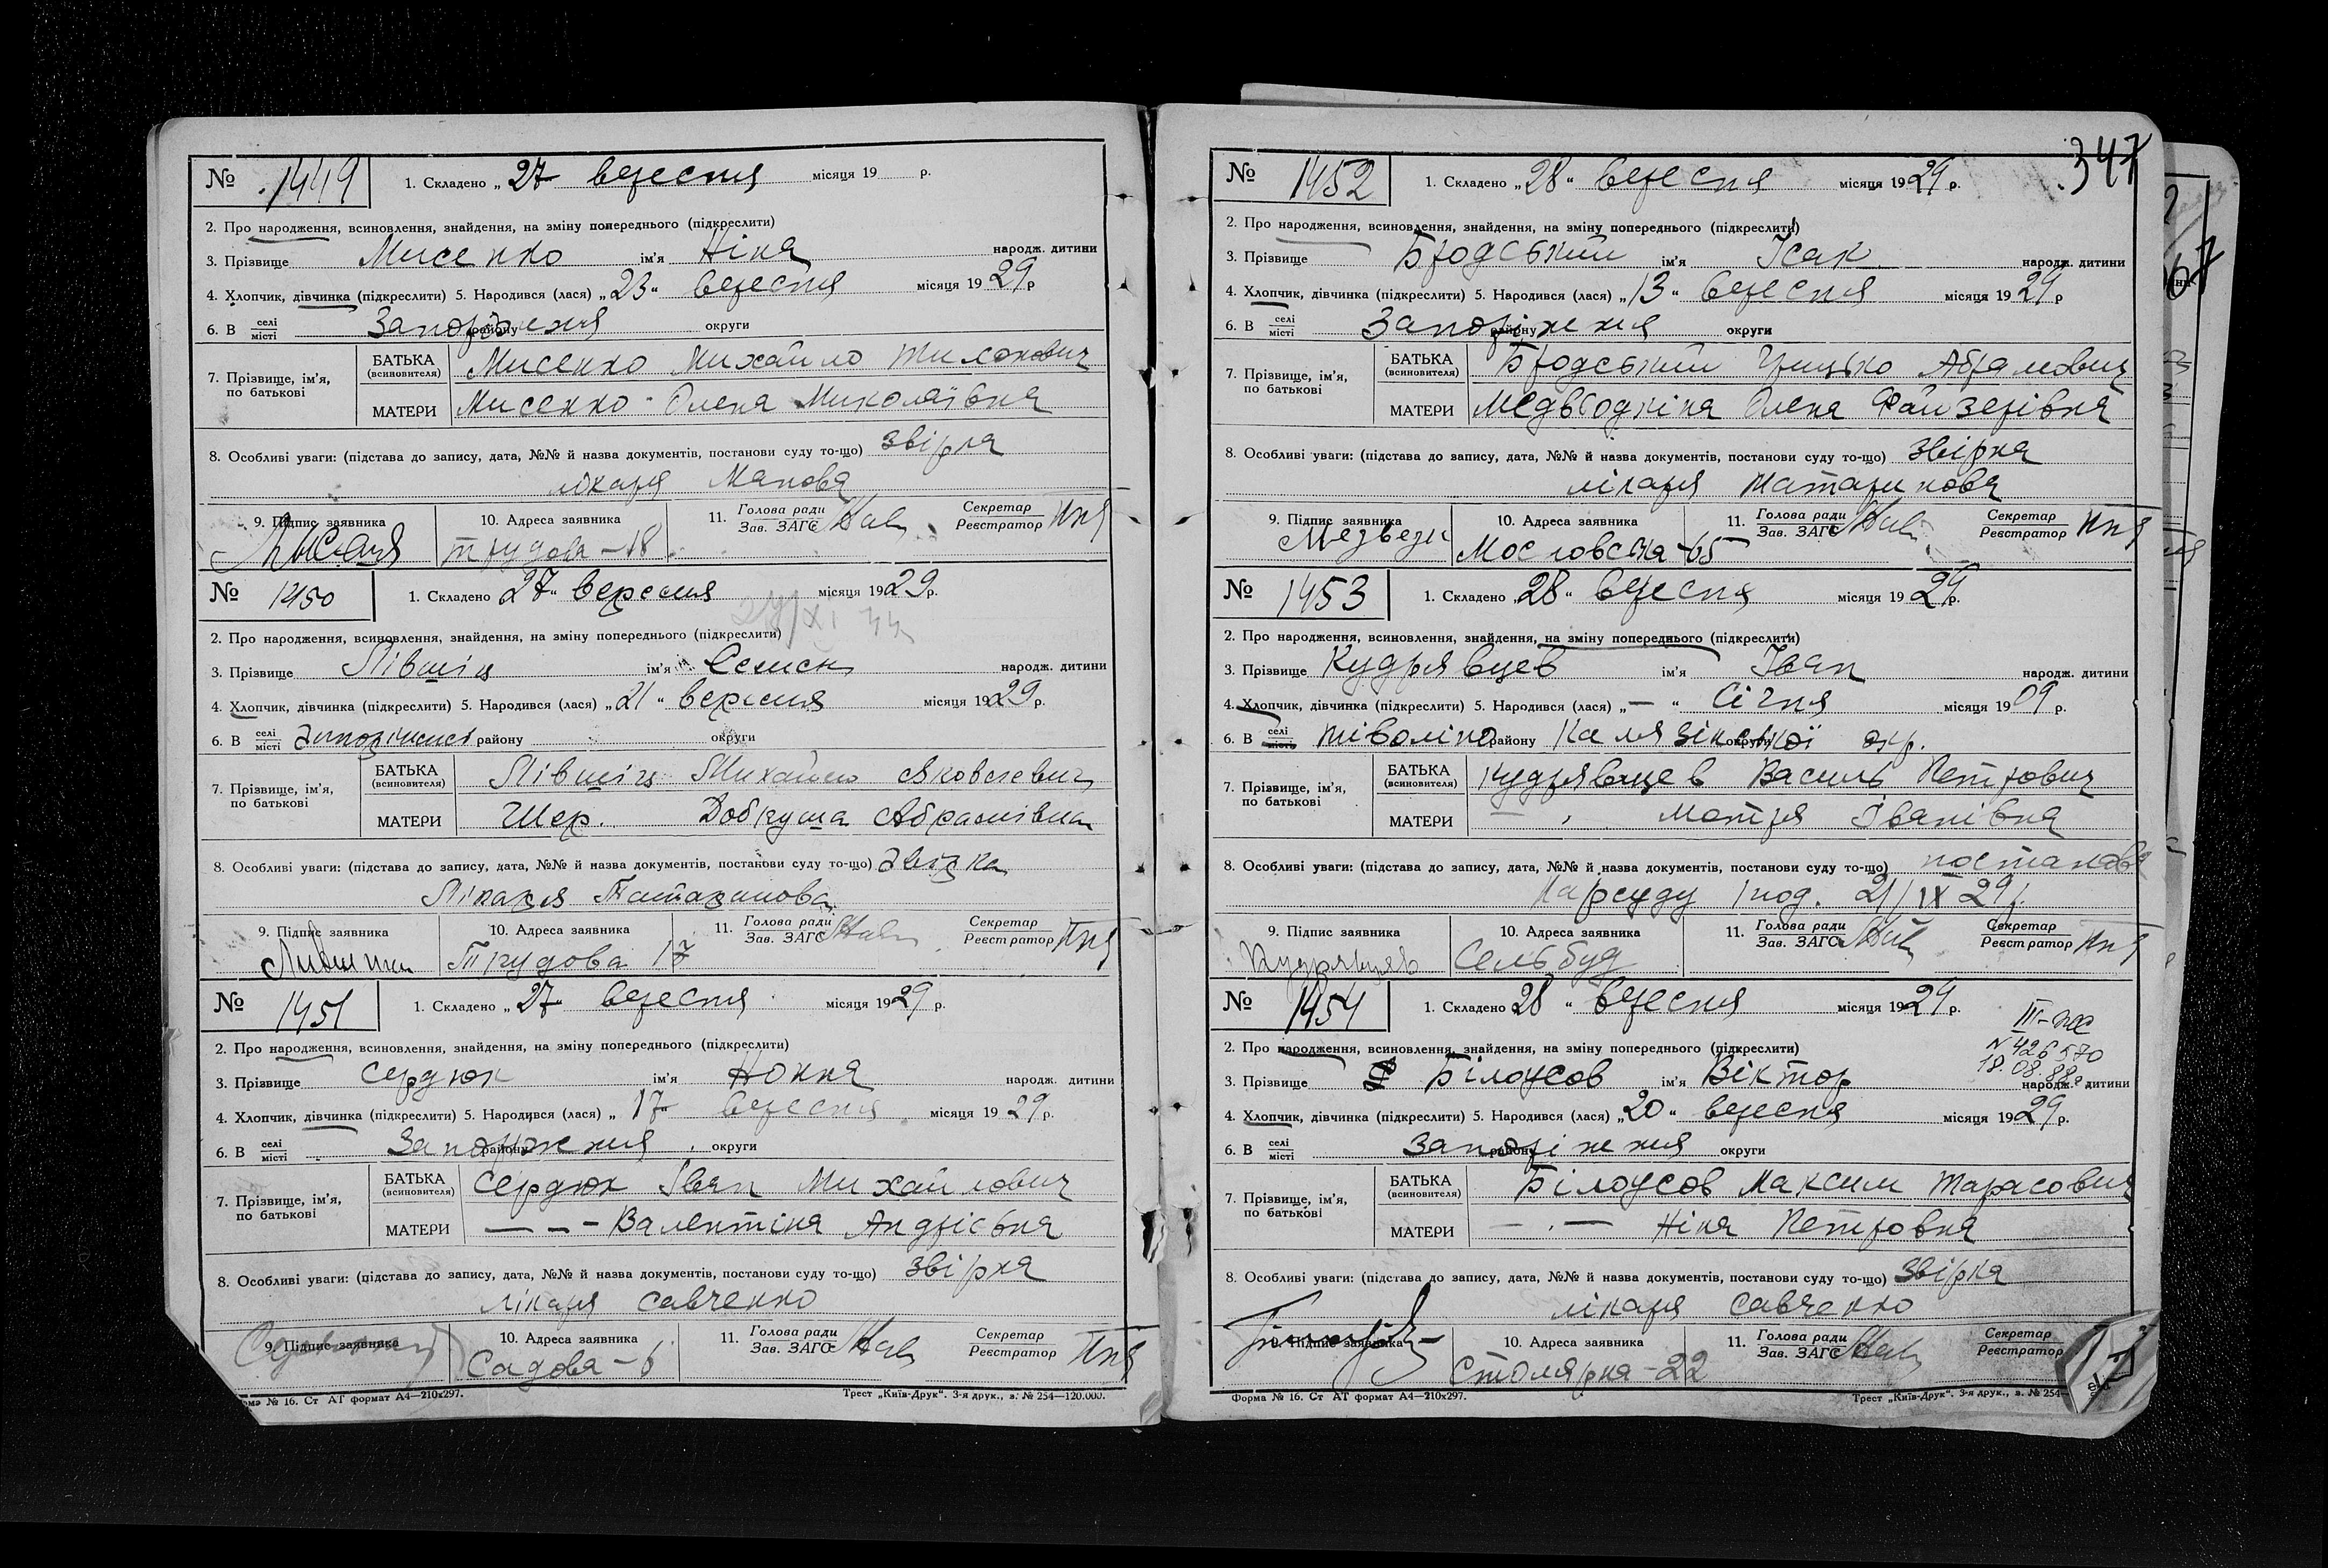 № 1449 1. Складено „27 вересня місяця 19 р.
2. Про народження, всиновлення, знайдення, на зміну попереднього (підкреслити)
3. Прізвище Мисенко ім'я Ніна народж. дитини
4. Хлопчик, дівчинка (підкреслити) 5. Народився (лася) „23" вересня місяця 1929 р
6. В селі місті Запоріжжя району округи
7. Прізвище, ім'я, по батькові
БАТЬКА (всиновителя) Мисенко Михайло
МАТЕРИ Мисенко Олена Миколаївна
8. Особливі уваги: (підстава до запису, дата, №№ й назва документів, постанови суду то-що) звірка
лікаря Манова
9. Підпис заявника 10. Адреса заявника 11. Голова ради Зав. ЗАГС Секретар Реєстратор
Трудова - 18
№ 1450 1. Складено 27" вересня місяця 1929 р.
2. Про народження, всиновлення, знайдення, на зміну попереднього (підкреслити)
3. Прізвище Лівшіц ім'я Семен народж. дитини
4. Хлопчик, дівчинка (підкреслити) 5. Народився (лася) „21" вересня місяця 1929 р.
6. В селі місті Запоріжжя району округи
7. Прізвище, ім'я, по батькові
БАТЬКА (всиновителя) Лівшіц Михайло Яковлевич
МАТЕРИ Шер. Добруша Абрамівна
8. Особливі уваги: (підстава до запису, дата, №№ й назва документів, постанови суду то-що) звірка
Лікаря Татаринова
9. Підпис заявника 10. Адреса заявника 11. Голова ради Зав. ЗАГС Секретар Реєстратор
Трудова 17
№ 1451 1. Складено „27" вересня місяця 1929 р.
2. Про народження, всиновлення, знайдення, на зміну попереднього (підкреслити)
3. Прізвище Сердюк ім'я Нонна народж. дитини
4. Хлопчик, дівчинка (підкреслити) 5. Народився (лася) „17" вересня місяця 1929 р.
6. В селі місті Запоріжжя району округи
7. Прізвище, ім'я, по батькові
БАТЬКА (всиновителя) Сердюк Іван Михайлович
МАТЕРИ — – – Валентіна Андріевна
8. Особливі уваги: (підстава до запису, дата, №№ й назва документів, постанови суду то-що) звірка
лікаря Савченко
9. Підпис заявника 10. Адреса заявника 11. Голова ради Зав. ЗАГС Секретар Реєстратор
Садова - 6
№ 16. Ст АТ формат А4—210х297. Трест „Київ-Друк". 3-я друк., з. № 254—120.000.
347
№ 1452 1. Складено „28" вересня місяця 1929 р.
2. Про народження, всиновлення, знайдення, на зміну попереднього (підкреслити)
3. Прізвище Бродський ім'я Ісак народж. дитини
4. Хлопчик, дівчинка (підкреслити) 5. Народився (лася) „13" вересня місяця 1929 р
6. В селі місті Запоріжжя району округи
7. Прізвище, ім'я, по батькові
БАТЬКА (всиновителя) Бродський Грицько Абрамович
МАТЕРИ Олена
8. Особливі уваги: (підстава до запису, дата, №№ й назва документів, постанови суду то-що) звірка
лікаря Татаринова
9. Підпис заявника 10. Адреса заявника 11. Голова ради Зав. ЗАГС Секретар Реєстратор
Московська - 65
№ 1453 1. Складено „28" вересня місяця 1929 р.
2. Про народження, всиновлення, знайдення, на зміну попереднього (підкреслити)
3. Прізвище Кудрявцев ім'я Іван народж. дитини
4. Хлопчик, дівчинка (підкреслити) 5. Народився (лася) „—" Січня місяця 1909 р.
6. В селі місті району Калязінської округи окр.
7. Прізвище, ім'я, по батькові
БАТЬКА (всиновителя) Кудрявцев Василь Петрович
МАТЕРИ — , Мотря Іванівна
8. Особливі уваги: (підстава до запису, дата, №№ й назва документів, постанови суду то-що) постанова
Нарсуду 21/IX 29 р.
9. Підпис заявника 10. Адреса заявника 11. Голова ради Зав. ЗАГС Секретар Реєстратор
Кудрявцев Сельбуд
№ 1454 1. Складено 28 " вересня місяця 1929 р.
N 426570
18.08.88
2. Про народження, всиновлення, знайдення, на зміну попереднього (підкреслити)
3. Прізвище Білоусов ім'я Віктор народж. дитини
4. Хлопчик, дівчинка (підкреслити) 5. Народився (лася) „20" вересня місяця 1929 р.
6. В селі місті Запоріжжя району округи
7. Прізвище, ім'я, по батькові
БАТЬКА (всиновителя) Білоусов Максим Тарасович
МАТЕРИ — . — Ніна Петровна
8. Особливі уваги: (підстава до запису, дата, №№ й назва документів, постанови суду то-що) звірка
лікаря Савченко
9. Підпис заявника 10. Адреса заявника 11. Голова ради Зав. ЗАГС Секретар Реєстратор
Столярна - 22
Форма № 16. Ст АТ формат А4—210х297. Трест „Київ-Друк". 3-я друк., з. № 254—